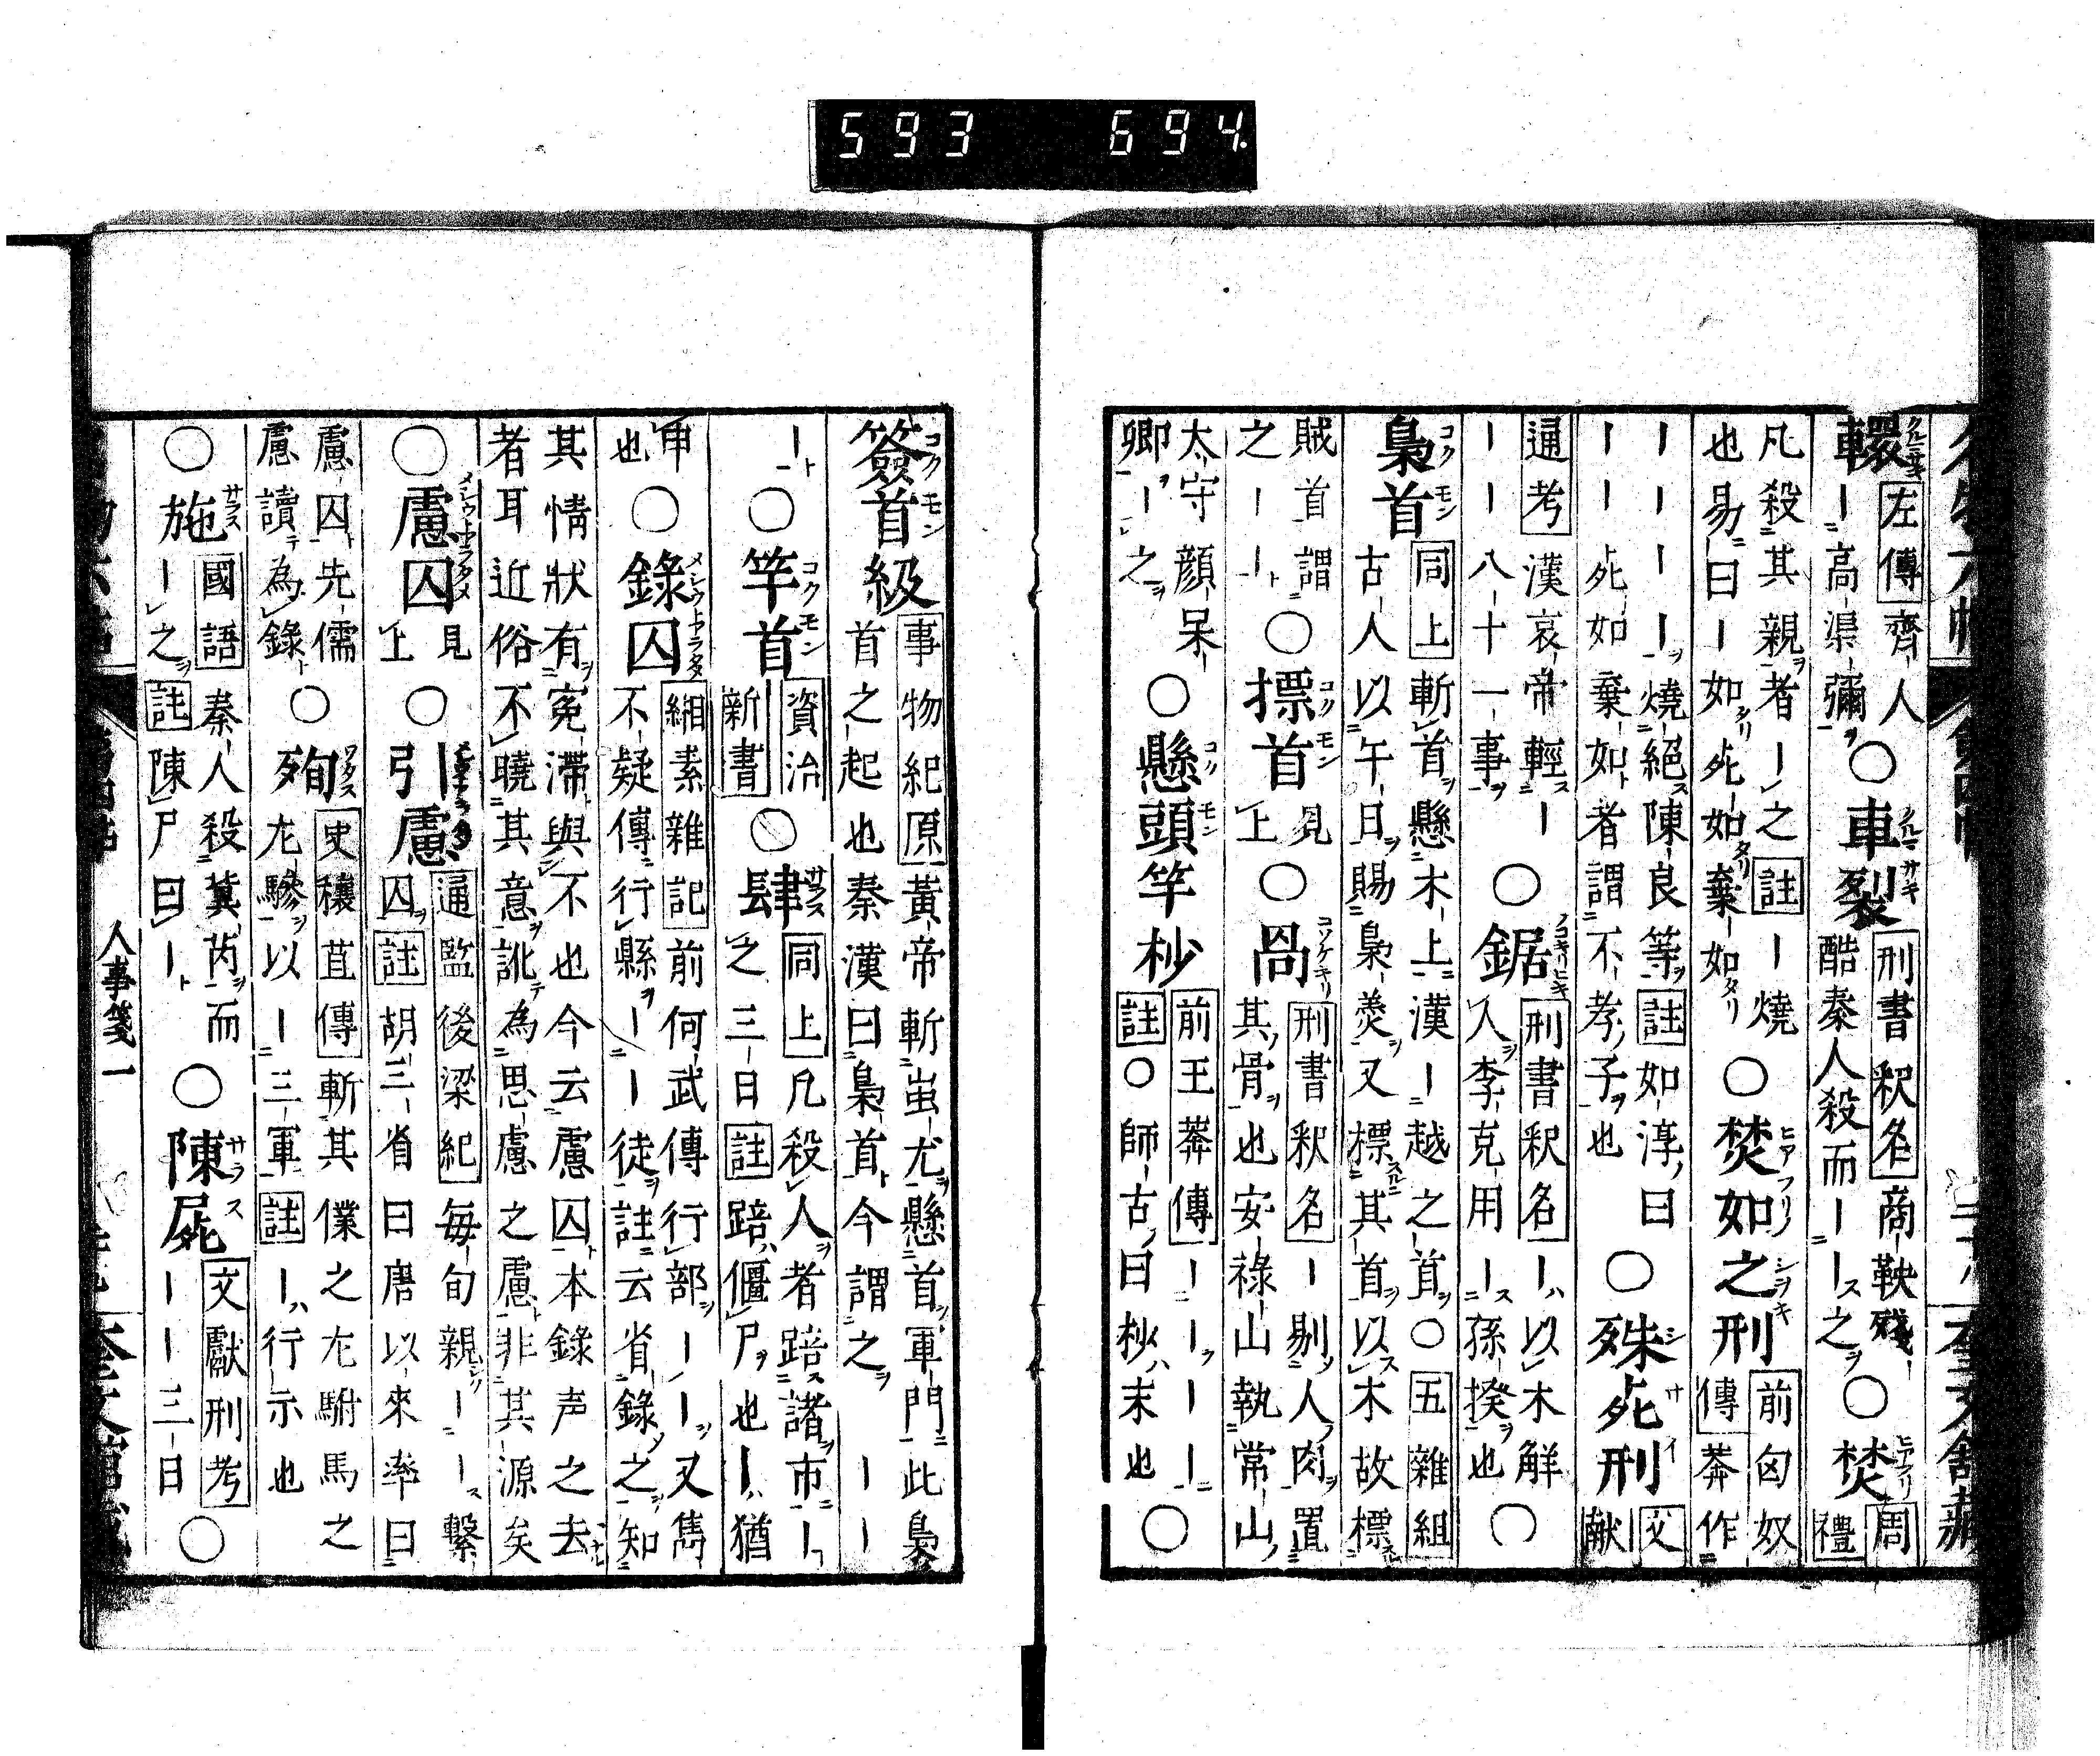 593 694.
轘 左傳齊人
ー高渠彌○車裂 刑書釈名商鞅殘
酷秦人殺而ーー之○焚 周
禮
凡殺其親者ー之註ー燒
也易曰ー如死如棄如○焚如之刑 前匈奴
傳莽作
ーーーー燒絕陳良等註如淳曰
ーー死如棄如者謂不孝子也○殊死刑 文
献
通考漢哀帝輕ー
ーー八十一事○鋸 刑書釈名ー以木解
入李克用ー孫揆也○
梟首 同上斬首懸木上漢ー越之首○五雜組
古人以午日賜梟羹又標其首以木故標
賊首謂
之ーー○摽首 見
上○咼 刑書釈名ー剔人肉置
其骨也安祿山執常山
太守顏杲
卿ー之○懸頭竿杪 前王莽傳ーーーー
註○師古曰杪末也○
簽首級 事物紀原黃帝斬蚩尤懸首軍門此梟
首之起也秦漢曰梟首今謂之ーー
ー○竿首 資治
新書○肆 同上凡殺人者踣諸市ー
之三日註踣僵尸也ー猶
申
也○錄囚 緗素雜記前何武傳行部ーー又雋
不疑傳行縣ーー徒註云省錄之知
其情狀有寃滯與不也今云慮囚本錄声之去
者耳近俗不曉其意訛為思慮之慮非其源矣
○慮囚 見
上○引慮 通監後梁紀毎旬親ーー繫
囚註胡三省曰唐以來率曰
慮囚先儒
慮讀為錄○殉 史穰苴傳斬其僕之左駙馬之
左驂以ー三軍註ー行示也
○施 國語秦人殺冀芮而
ー之註陳尸曰ー○陳屍 文獻刑考
ーー三日○
人事箋一